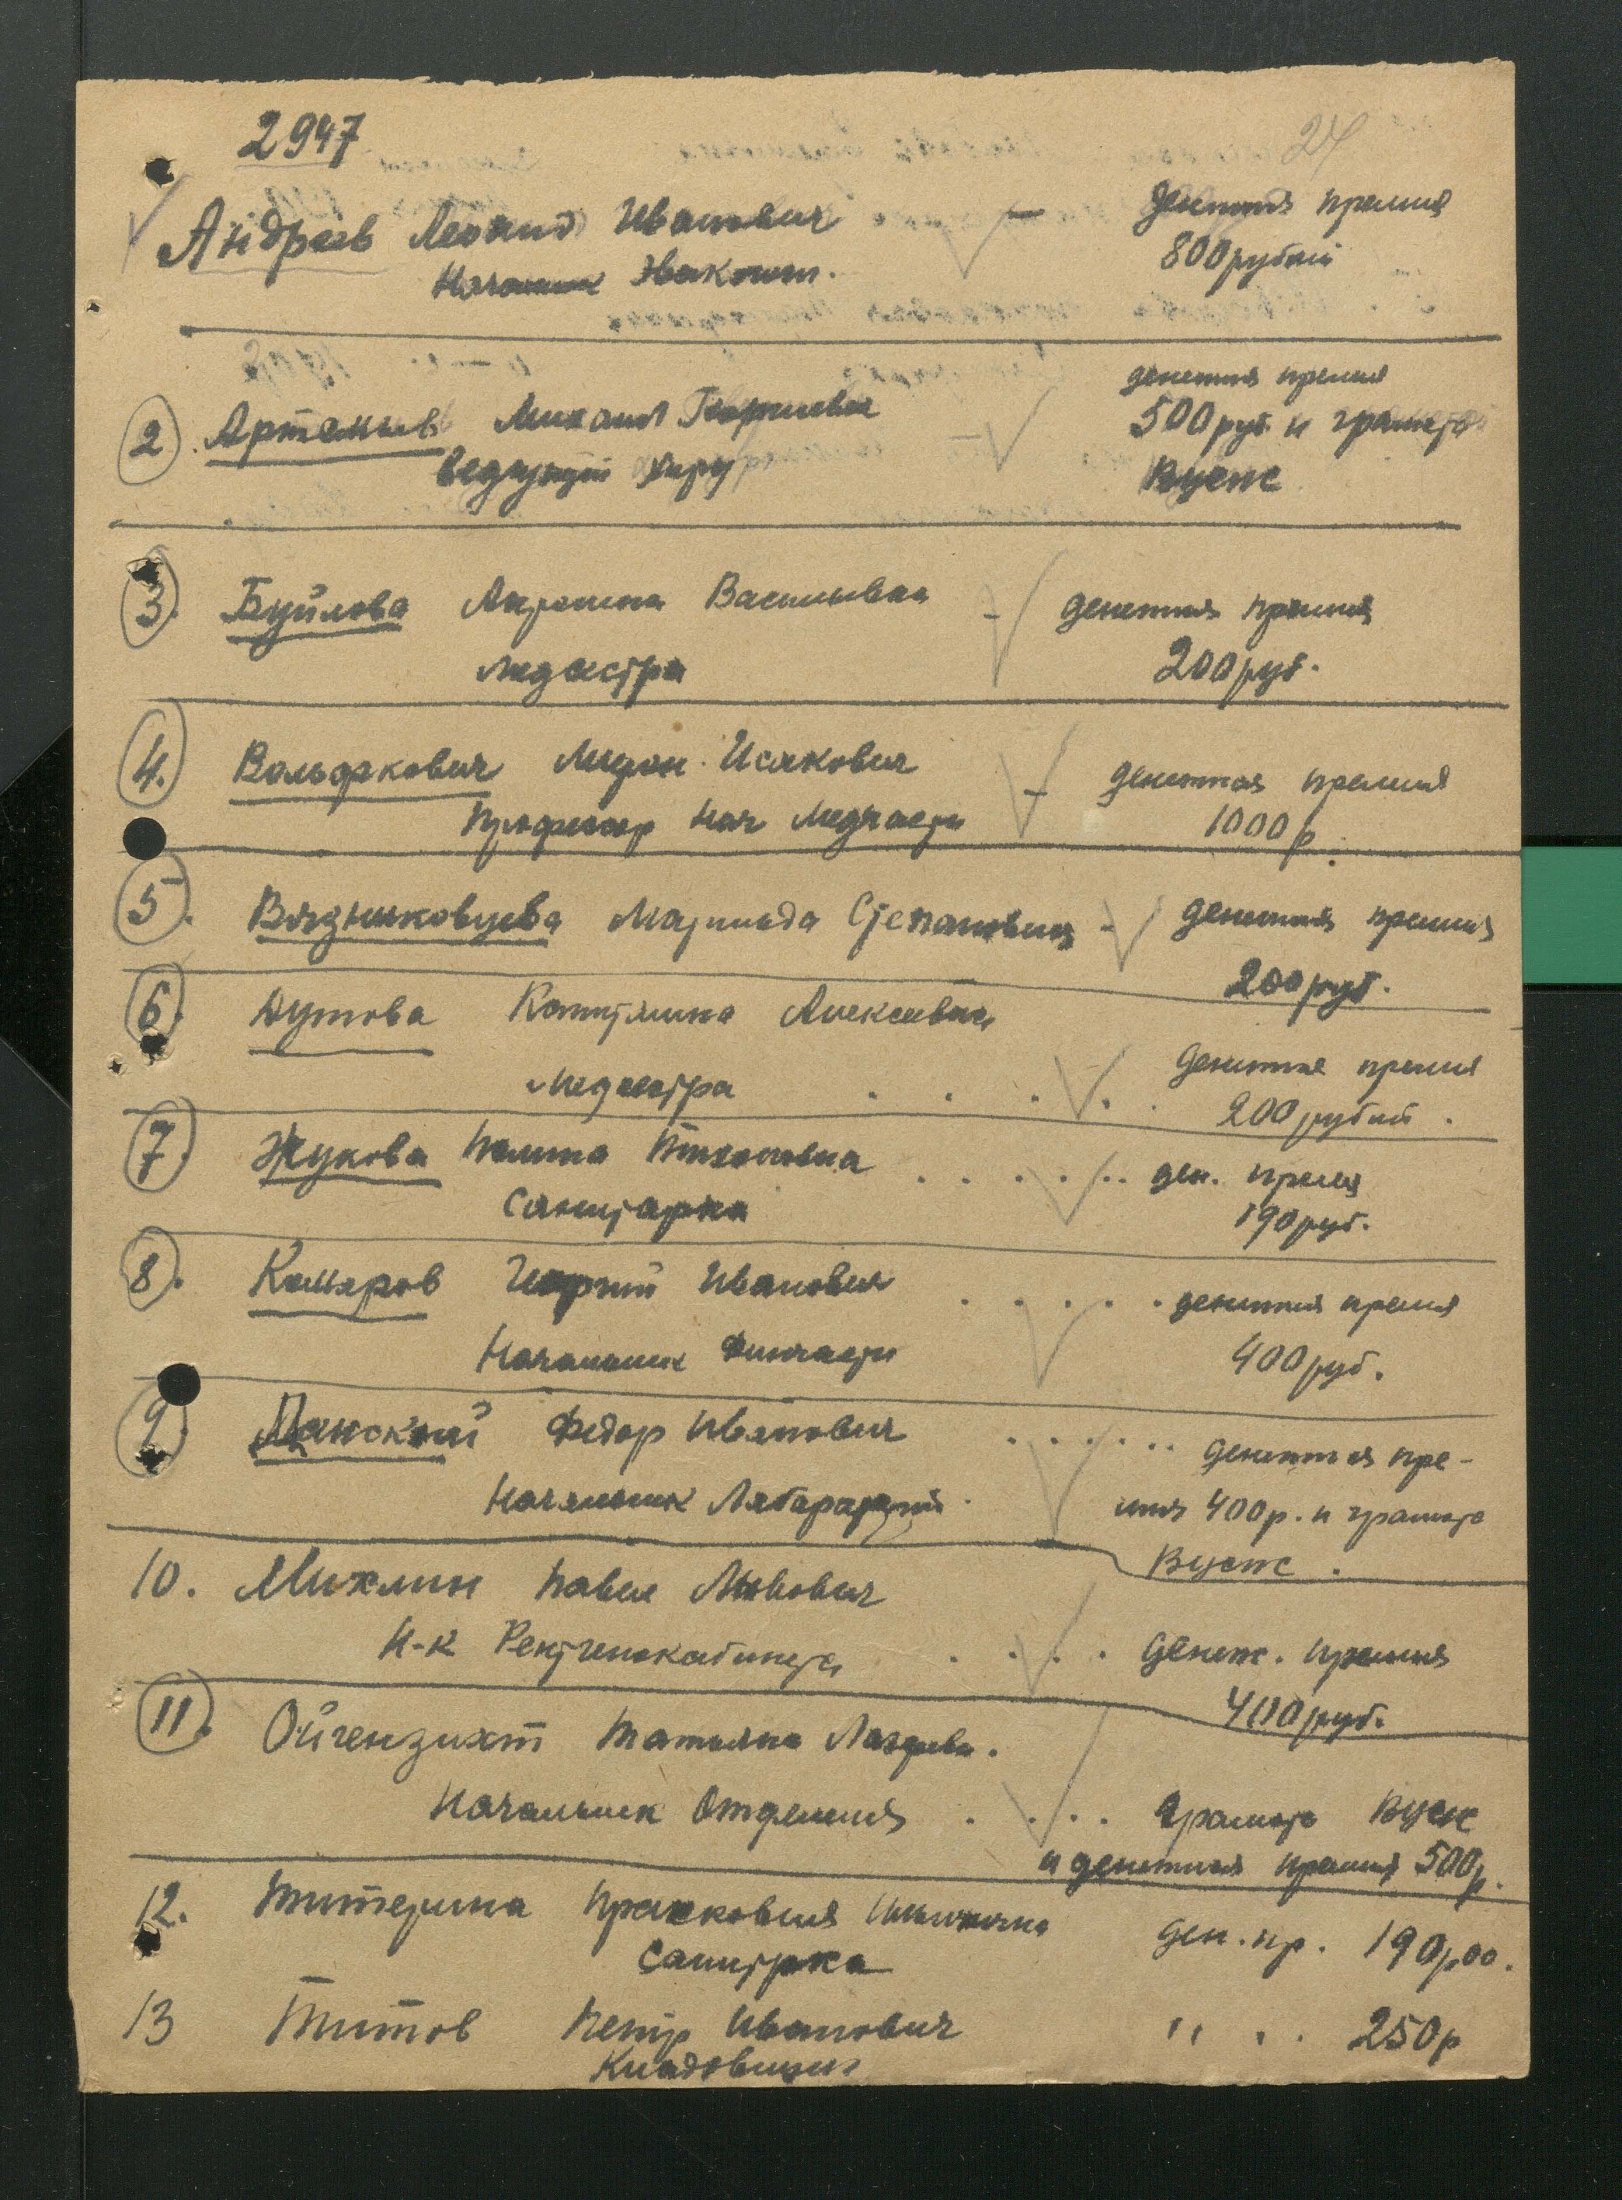 2947
24
Андреев Леонид Иванович – денежная премия
Начальник Эвакогосп. 800 рублей
2. Артемьев Михаил Георгиевич – денежная премия
500 руб. и грамота
Ведущий хирург ВЦСПС
3. Буйлова Васильевна – денежная премия
Медсестра 200 руб.
4. Вольфкович Мирон Исакович – денежная премия
Профессор Нач Медчасти 1000 р
5. Вязниковцева Матильда Степановна – денежная премия
200 руб.
6. Дутова Капитолина Алексеевна
Медсестра . . . . . денежная премия
200 рублей.
7. Жукова Полина Тихоновна . . . . . . ден. премия
Санитарка 190 руб.
8. Комаров Георгий Иванович . . . . . денежная премия
Начальник Финчасти 400 руб.
9. Данской Федор Иванович . . . . . . денежная пре-
Начальник Лаборатории. мия 400 р. и грамота
ВЦСПС.
10. Михлин Павел Львович
Н-к Рентгенокабинета . . . . Денеж. премия
400 руб.
11. Ойгензихт Татьяна Лазаревн.
Начальник Отделения . . . . Грамота ВЦСПС
и денежная премия 500 р.
12. Титерина Прасковия ден. пр. 190 р 00.
Санитрка
13 Титов Петр Иванович " . . 250 р
Кладовщик